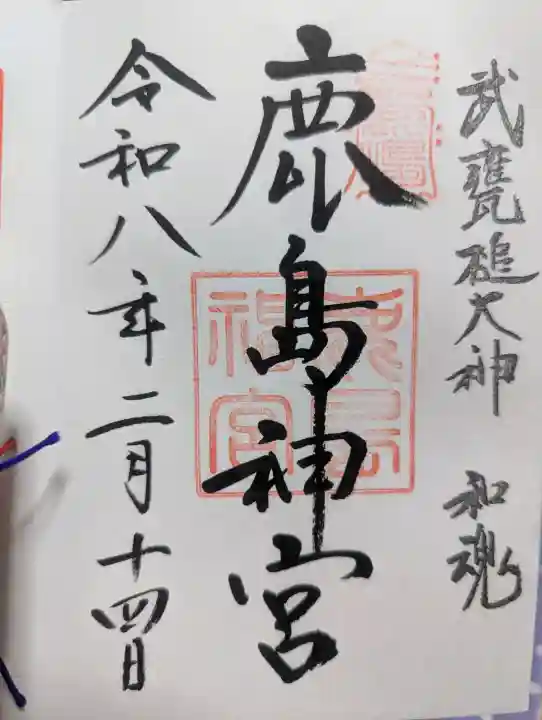 武甕槌大神 和魂
鹿島神宮
令和八年二月十四日
鹿島神宮